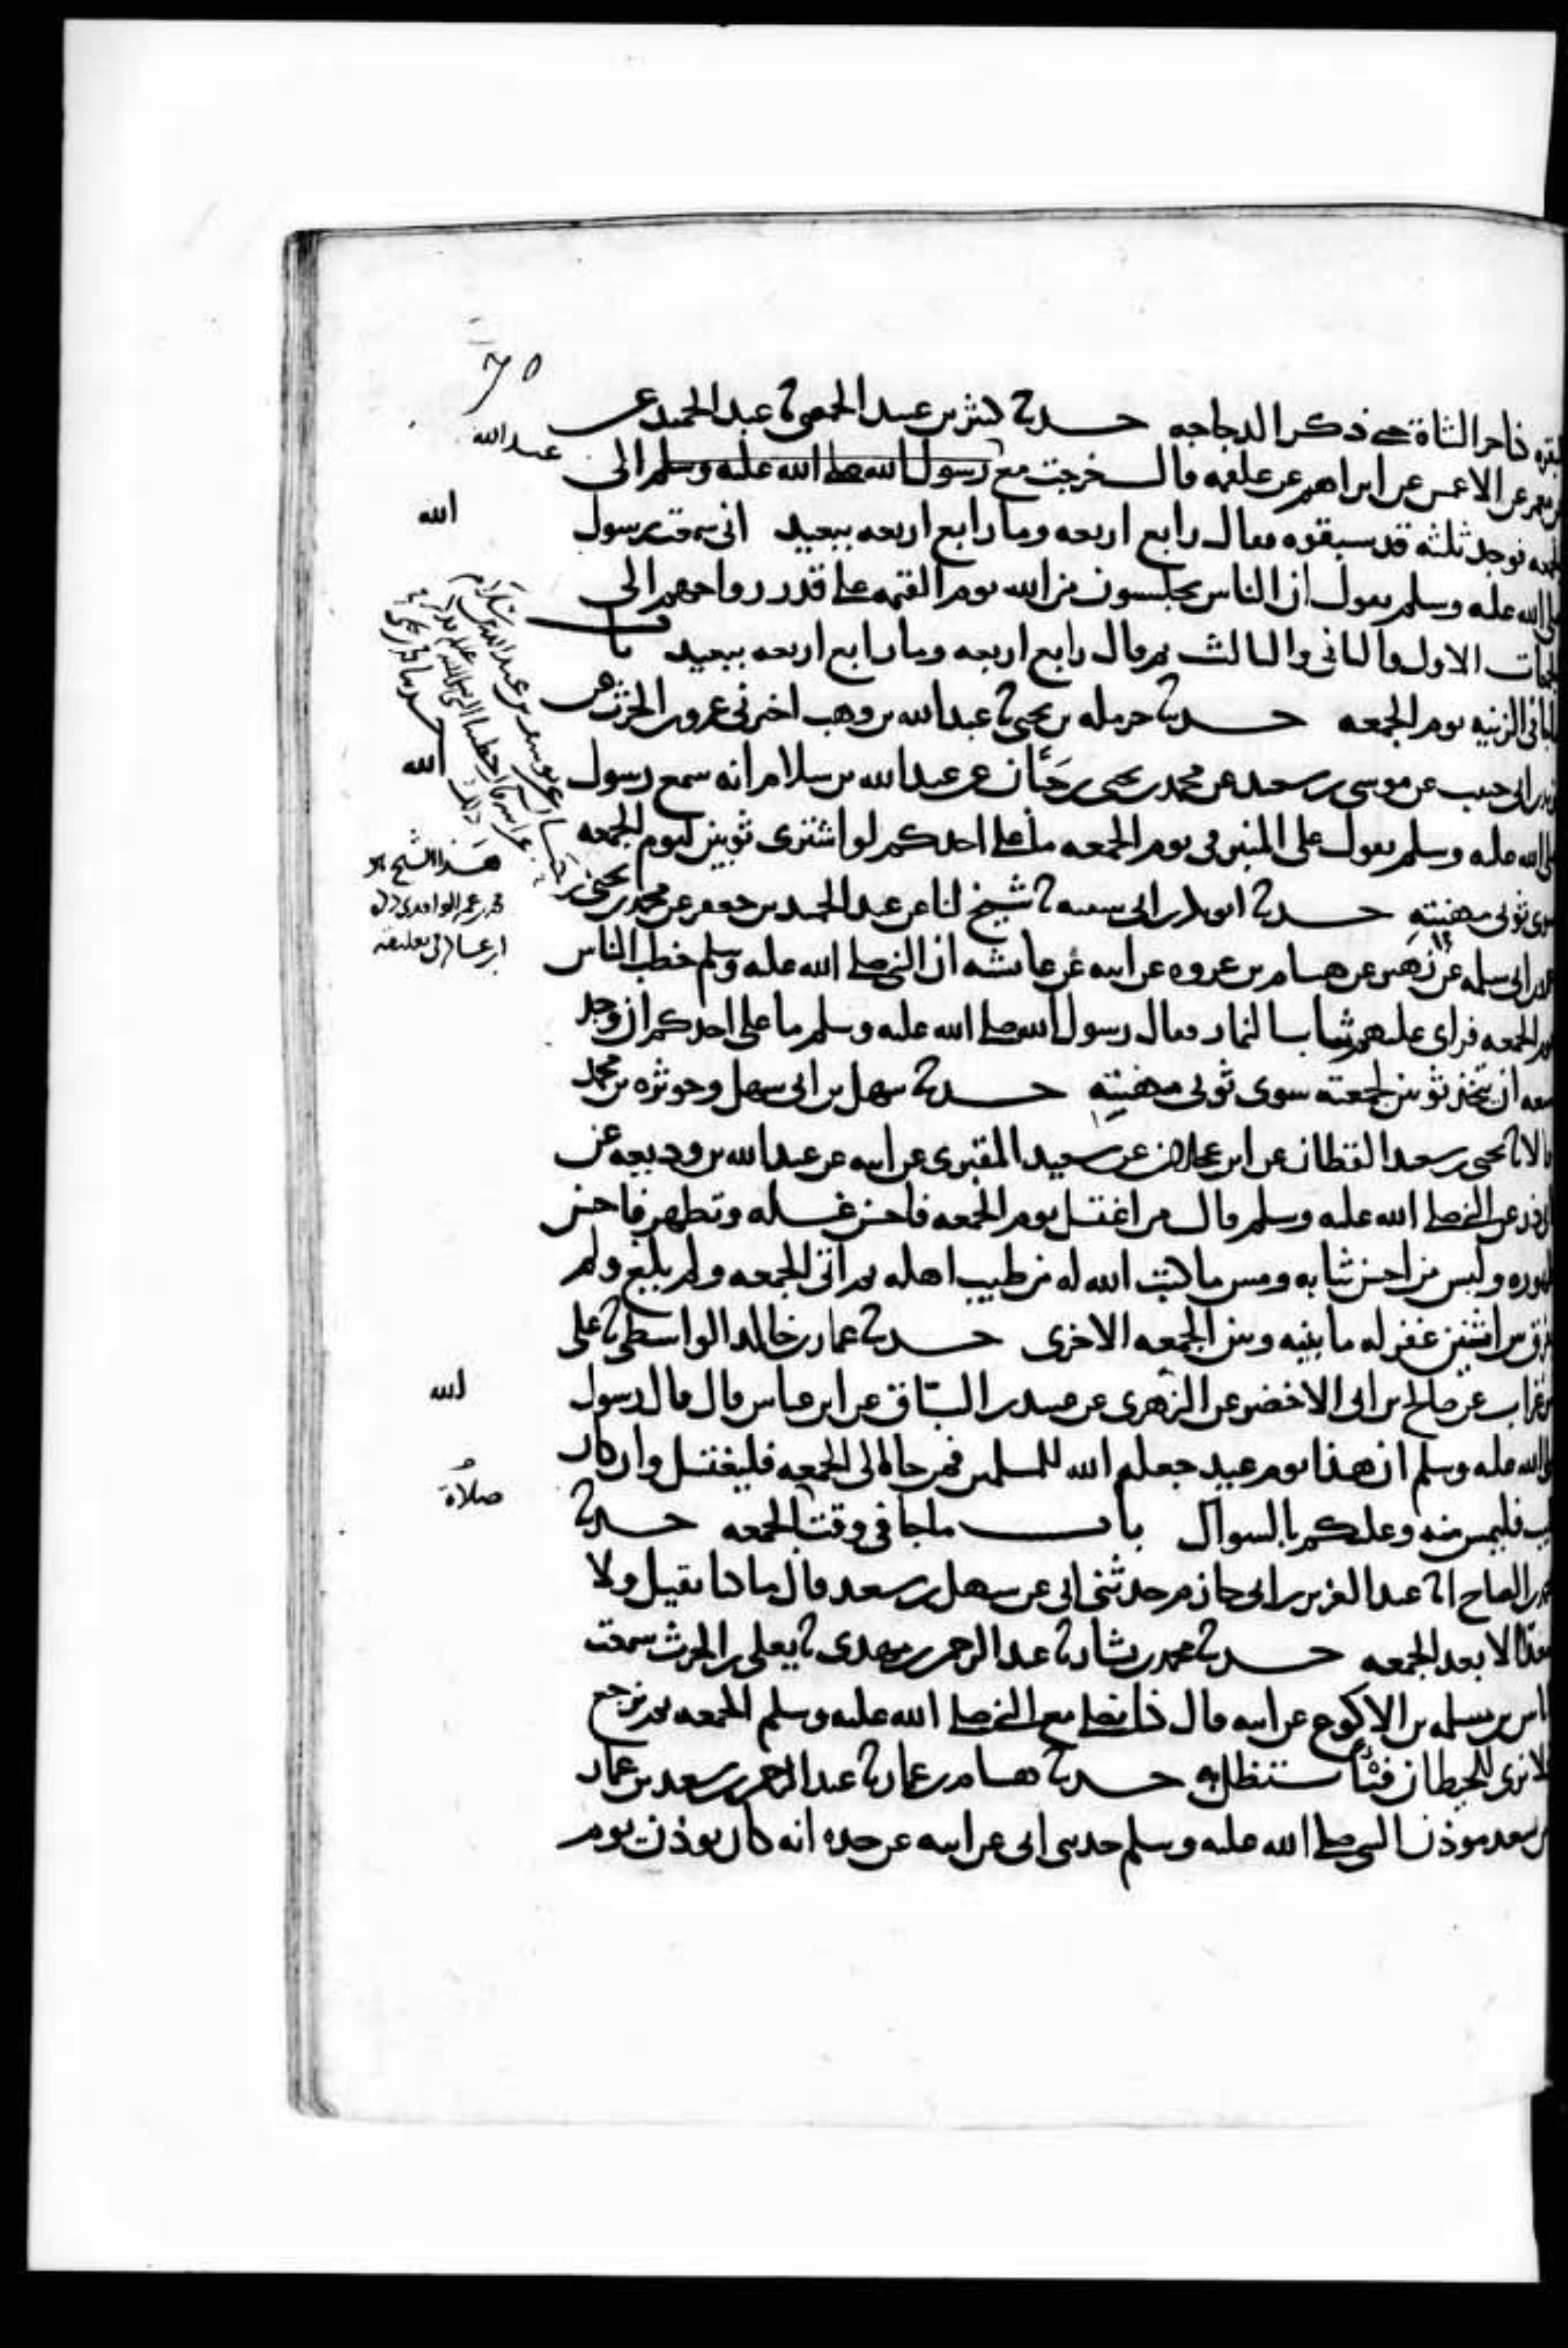 70
كناحر الشاة حتى ذكر الدجاجه حدثنا كثير بن عبيد الحمصي ثنا عبد الحميد عن
معمر عن الاعمش عن ابراهيم عن علقمه قال خرجت مع رسول الله صلى الله عليه وسلم الى
عبد الله
فوجد ثلثه قد سبقوه فقال رابع اربعه وما رابع اربعه ببعيد اني سمعت رسول
الله
الله عليه وسلم يقول ان الناس يجلسون من الله يوم القيمه على قدر رواحهم الى
الاول والثاني والثالث ثم قال رابع اربعه وما رابع اربعه ببعيد باب
في الزينه يوم الجمعه حدثنا حرمله بن يحيى ثنا عبد الله بن وهب اخبرني عمرو بن الحرث عن
ابي حبيب عن موسى بن سعيد عن محمد بن يحيى بن حبان عن عبد الله بن سلام انه سمع رسول
الله
الله عليه وسلم يقول على المنبر في يوم الجمعه ما على احدكم لو اشترى ثوبين ليوم الجمعه
سوى ثوبي مهنته حدثنا ابو بكر بن ابي شيبه ثنا شيخ لنا عن عبد الحميد بن جعفر عن محمد بن يحيى بن
حبان عن يوسف بن عبد الله بن سلام
عن ابيه قال خطبنا النبي صلى الله عليه وسلم
ذلك حدثنا محمد بن يحيى
هذا الشيخ هو
محمد بن عمر الواقدي
ابن عساكر في تعليقه
ابي سلمه عن زهير عن هشام بن عروه عن ابيه عن عائشه ان النبي صلى الله عليه وسلم خطب الناس
يوم الجمعه فراى عليهم ثياب النمار فقال رسول الله صلى الله عليه وسلم ما على احدكم ان وجد
سعه ان يتخذ ثوبين لجمعته سوى ثوبي مهنته حدثنا سهل بن ابي سهل وحوثره بن محمد
قالا ثنا يحيى بن سعيد القطان عن ابن عجلان عن سعيد المقبري عن ابيه عن عبد الله بن وديعه عن
ابي ذر عن النبي صلى الله عليه وسلم قال من اغتسل يوم الجمعه فاحسن غسله وتطهر فاحسن
طهوره ولبس من احسن ثيابه ومس ما كتب الله له من طيب اهله ثم اتى الجمعه ولم يلغ ولم
يفرق بين اثنين غفر له ما بينه وبين الجمعه الاخرى حدثنا عمار بن خالد الواسطي ثنا علي
بن غراب عن صالح بن ابي الاخضر عن الزهري عن عبيد بن السباق عن ابن عباس قال قال رسول
الله
الله عليه وسلم ان هذا يوم عيد جعله الله للمسلمين فمن جا الى الجمعه فليغتسل وان كان
صلاة
طيب فليمس منه وعليكم بالسواك باب ما جا في وقت الجمعه حدثنا
محمد بن الصباح انا عبد العزيز بن ابي حازم حدثني ابي عن سهل بن سعد قال ما كنا نقيل ولا
نتغدا الا بعد الجمعه حدثنا محمد بن بشار ثنا عبد الرحمن بن مهدي ثنا يعلى بن الحرث سمعت
اياس بن سلمه بن الاكوع عن ابيه قال كنا نصلي مع النبي صلى الله عليه وسلم الجمعه ثم نرجع
فلا نرى للحيطان فيئا نستظل به حدثنا هشام بن عمار ثنا عبد الرحمن بن سعد بن عمار
بن سعد موذن النبي صلى الله عليه وسلم حدثني ابي عن ابيه عن جده انه كان يوذن يوم